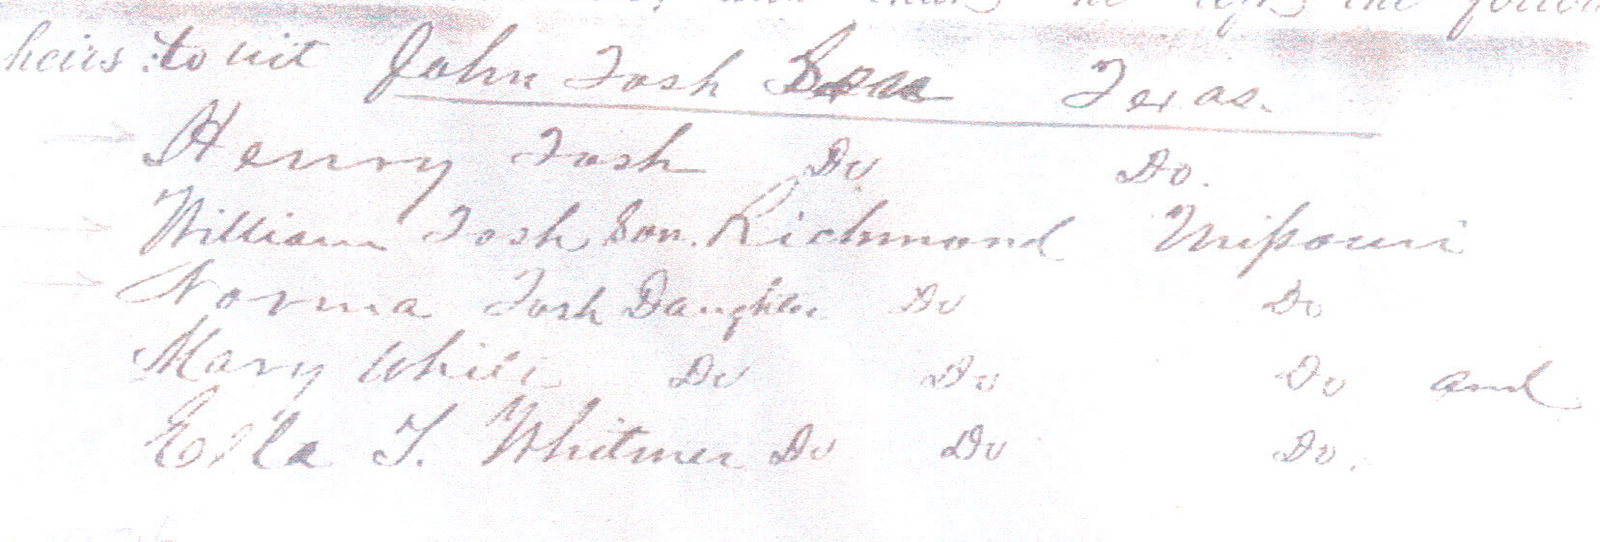 he left the follow
heirs to wit John Tosh Son Texas.
Henry Tosh Do Do.
William Tosh Son. Richmond Missouri
Norma Tosh Daughter Do Do
Mary White Do Do Do and
Ella T. Whitmer Do Do Do.